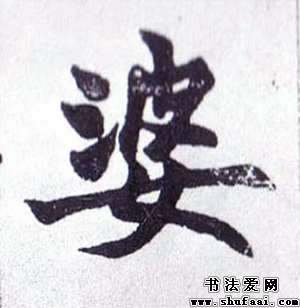 婆
书法爱网
www.shufaai.com